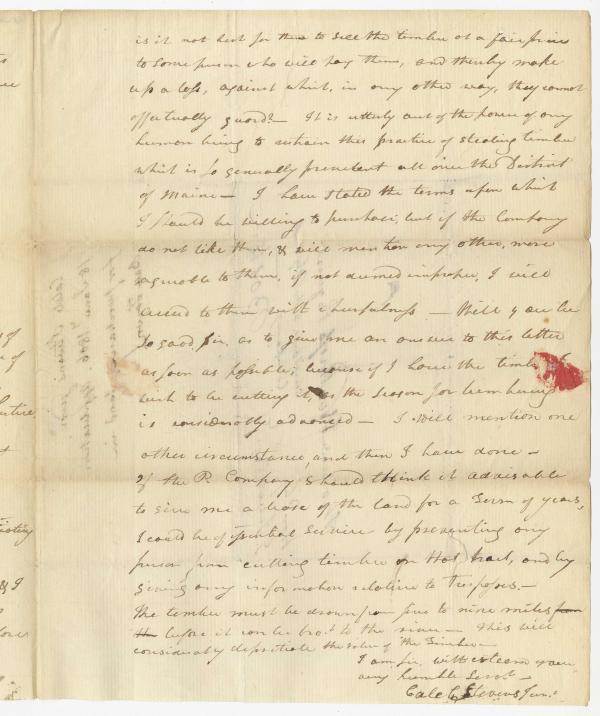 is it not best for them to sell the timber at a fair price
to some person who will pay them, and thereby make
up a loss, against which, in any other way, they cannot
effectually guard? — It is utterly out of the power of any
human being to restrain this practice of stealing timber
which is so generally prevalent all over the District
of Maine — I have stated the terms upon which
I should be willing to purchase, but if the Company
do not like them, & will mention any other, more
agreeable to them, if not deemed improper, I will
accede to them with cheerfulness — Will you be
so good, Sir, as to give me an answer to this letter
as soon as possible; because if I have the timber I
wish to be cutting it, as the season for lumbering
is considerably advanced — I will mention one
other circumstance, and then I have done —
If the P. Company should think it advisable
to give me a lease of the land for a Term of years,
I could be of essential service by preventing any
person from cutting timber on that tract, and by
giving any information relative to Trespasses. —
The timber must be drawn from five to nine miles from
the before it can be bro.t to the river — This will
considerably depreciate the value of the Timber —
I am Sir, with esteem your
very humble Serv.t
Caleb Stevens Jun.r